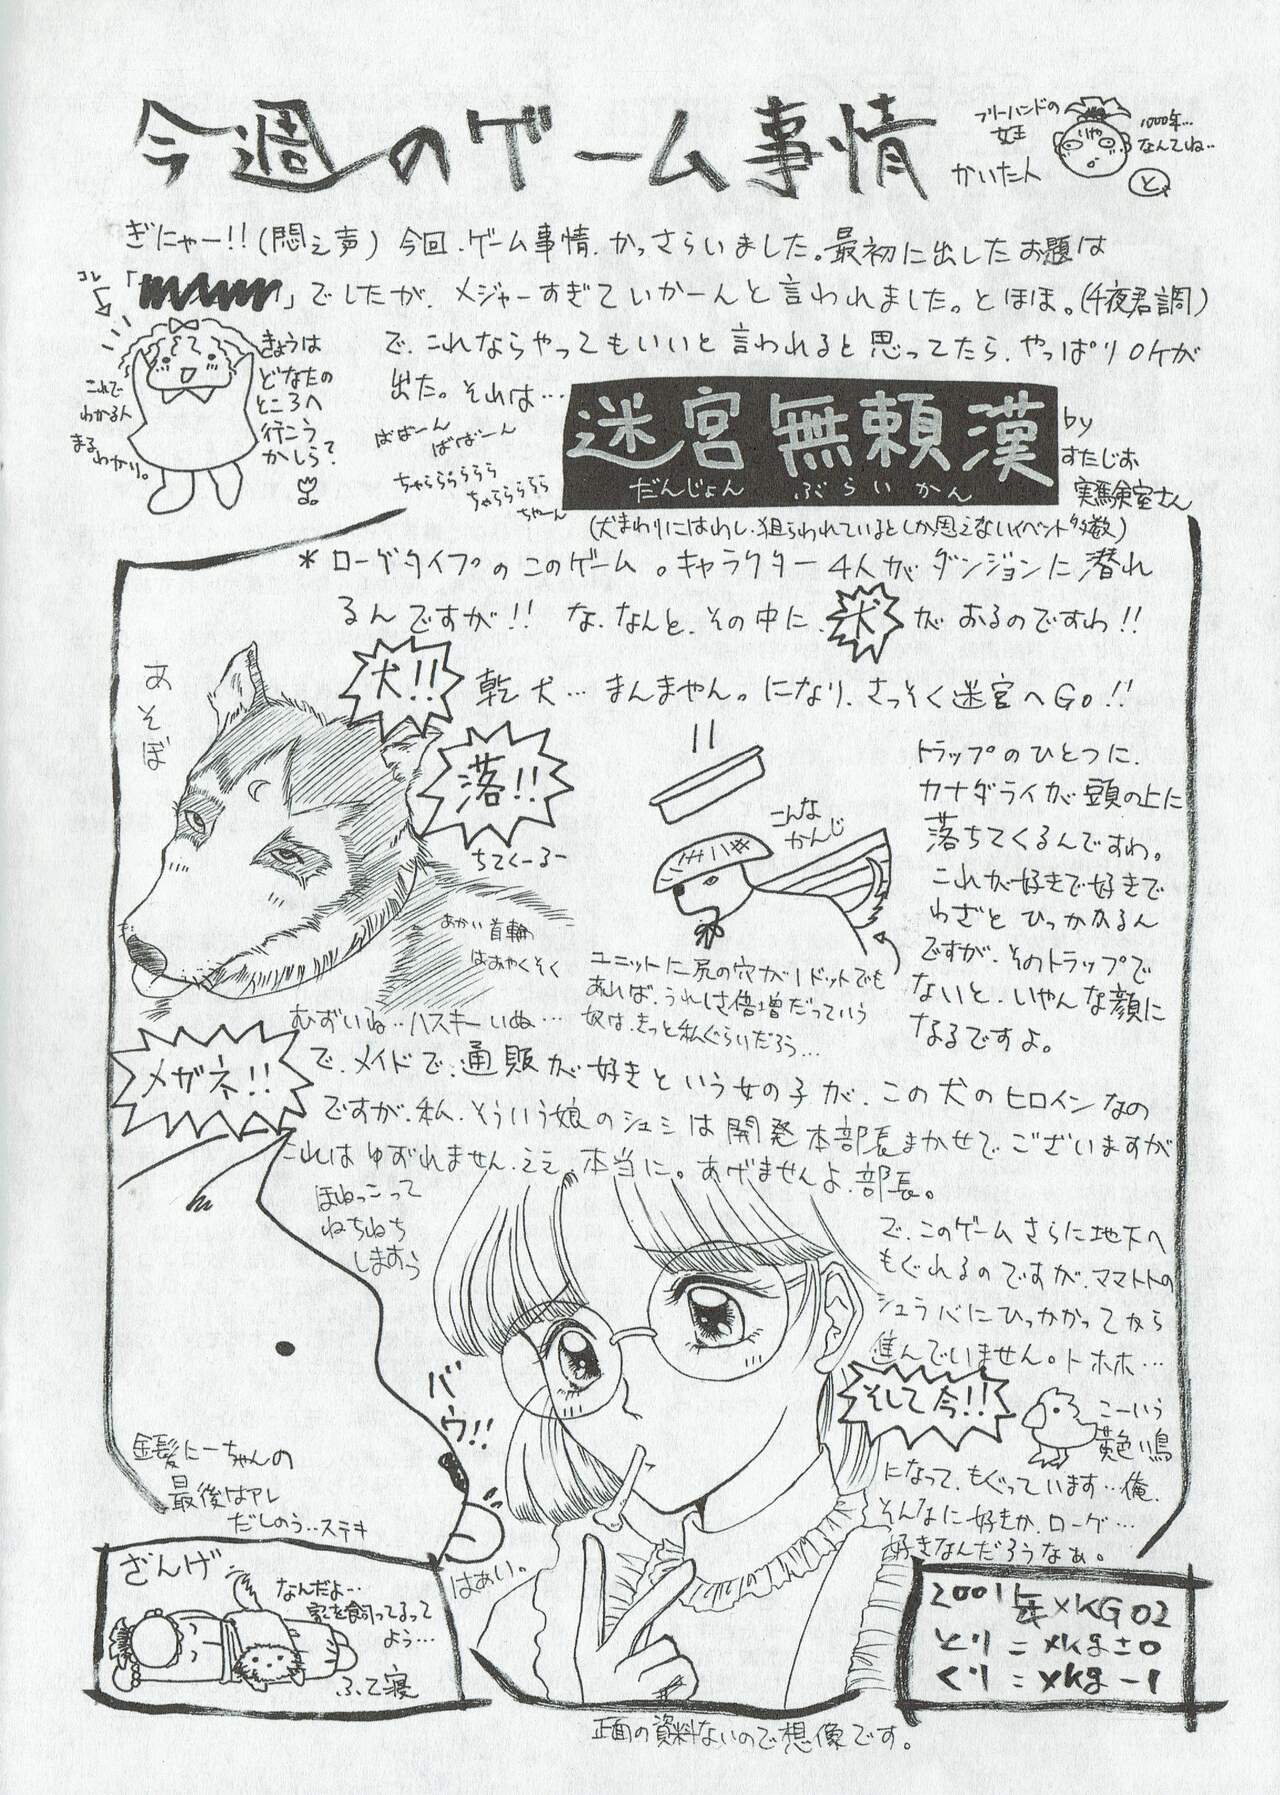 今週のゲーム事情
フリーハンドの
女王
かいた人
1000年…
なんてね…
ぎにゃー!!(悶え声) 今回.ゲーム事情.かっさらいました。最初に出したお題は
「　　　」でしたが、メジャーすぎていかーんと言われました。とほほ。(千夜君調)
コレ
これで
わかる人
まる
わかり。
きょうは
どなたの
ところへ
行こう
かしら?
で、これならやってもいいと言われると思ってたら、やっぱりOKが
出た。それは…
ばばーん
ばばーん
ちゃららららら
ちゃららららら
ちゃーん
迷宮無頼漢
だんじょん ぶらいかん
by
すたじお
実験室さん
(犬まわりにはわし、狙らわれているとしか思えないイベント多数)
*ローグタイプのこのゲーム。キャラクター4人がダンジョンに潜れ
るんですが!! な、なんと、その中に、犬がおるのですわ!!
犬!! 乾犬…まんまやん。になり、さっそく迷宮へGO!!
あそぼ
落!!
ちてくーるー
こんな
かんじ
トラップのひとつに、
カナダライが頭の上に
落ちてくるんですわ。
これが好きで好きで
わざとひっかかるん
ですが、そのトラップで
ないと、いやんな顔に
なるですよ。
あかい首輪
はおやくそく
ユニットに尻の穴が1ドットでも
あれば、うれしさ倍増だっていう
奴は、きっと私ぐらいだろう…
むずいね…ハスキーいぬ…
メガネ!!
で、メイドで、通販が好きという女の子が、この犬のヒロインなの
ですが、私、そういう娘のシュミは開発本部長まかせで、ございますが
これはゆずれません、ええ、本当に。あげませんよ、部長。
ほねっこって
ねちねち
しますぅ
で、このゲームさらに地下へ
もぐれるのですが、ママトトの
シュラバにひっかかってから
進んでいません。トホホ…
そして今!!
こーいう
黄色い鳥
になって、もぐっています…俺、
そんなに好きか、ローグ…
好きなんだろうなぁ。
バウ!!
金髪にーちゃんの
最後はアレ
だしのう…ステキ
はぁい。
ざんげ
なんだよ…
家を飼ってるって
よう…
ふて寝
2001年×KG02
とり=×kg±0
くり=×kg-1
正面の資料ないので想像です。